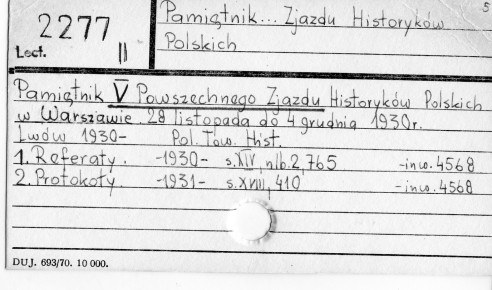 5
Pamiętnik... Zjazdu Historyków
2277
Polskich
Lect. II
Pamiętnik V Powszechnego Zjazdu Historyków Polskich
w Warszawie 28 listopada do 4 grudnia 1930 r.
Lwów 1930- Pol. Tow. Hist.
1. Referaty. -1930- s. XIV, nlb. 2, 765 -inw. 4568
2. Protokoły. -1931- s. XVIII, 410 -inw. 4568
DUJ. 693/70. 10 000.